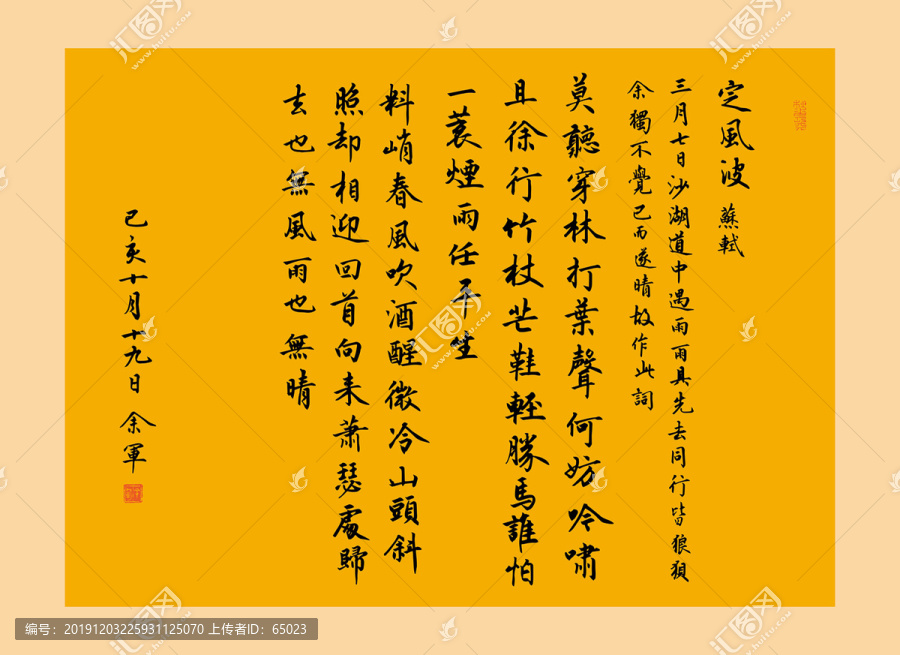 定風波 蘇軾
三月七日沙湖道中遇雨雨具先去同行皆狼狽
余獨不覺已而遂晴故作此詞
莫聽穿林打葉聲何妨吟嘯
且徐行竹杖芒鞋輕勝馬誰怕
一蓑煙雨任平生
料峭春風吹酒醒微冷山頭斜
照却相迎回首向来蕭瑟處歸
去也無風雨也無晴
己亥十月十九日 余軍
编号：20191203225931125070 上传者ID：65023